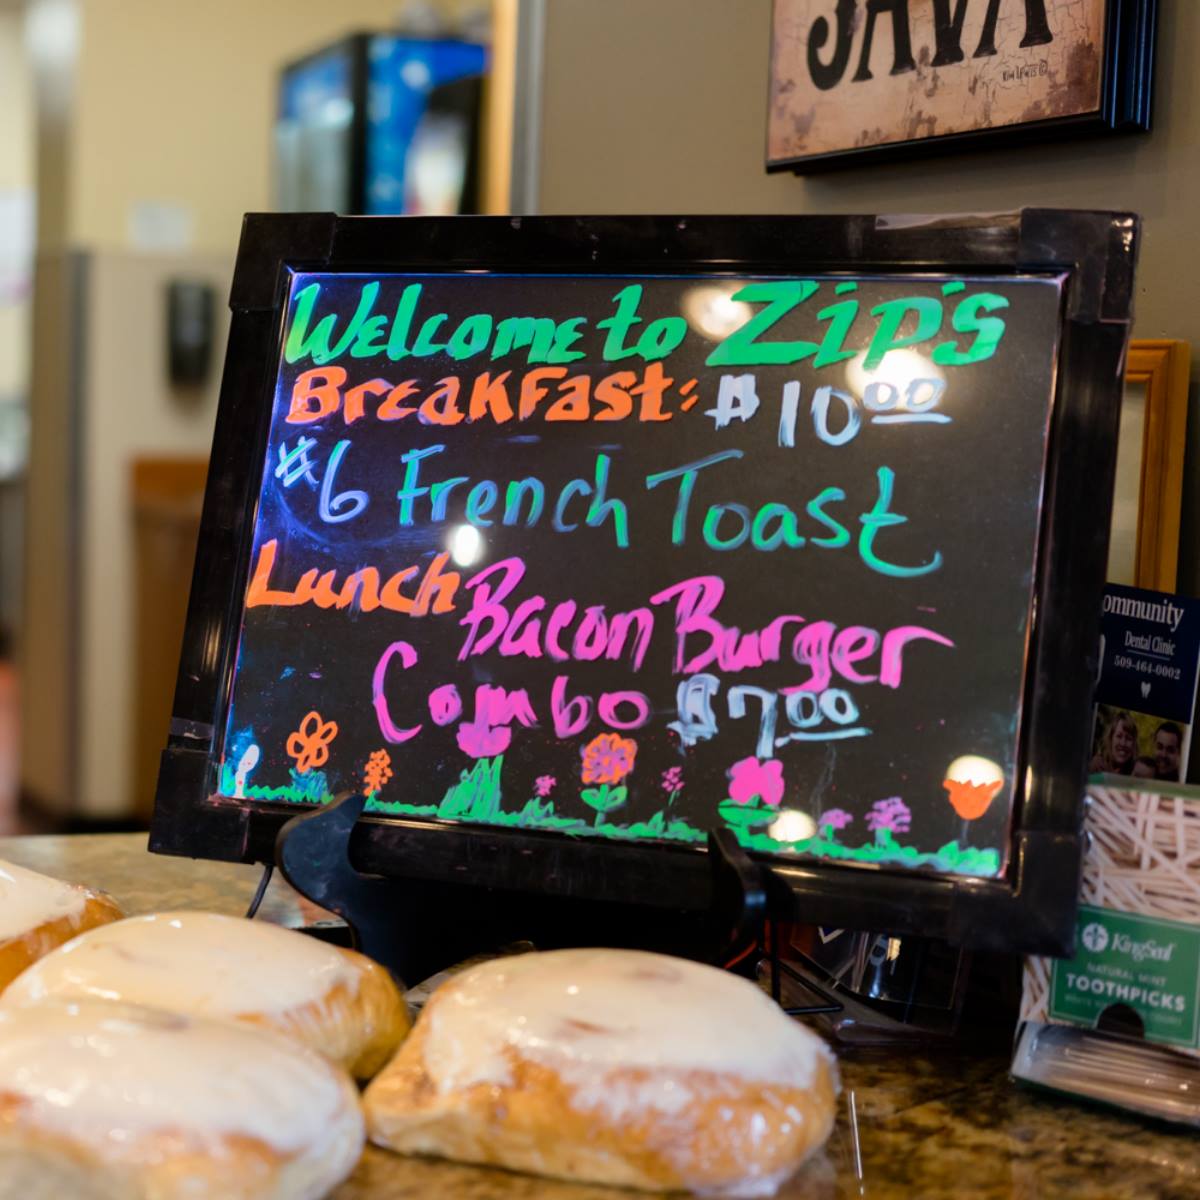 JAVA
KIM LEWIS ©
Welcome to Zip's
Breakfast: $10.00
#6 French Toast
Lunch Bacon Burger
Combo $7.00
ommunity
Dental Clinic
509-464-0002
KingSeal
NATURAL MINT
TOOTHPICKS